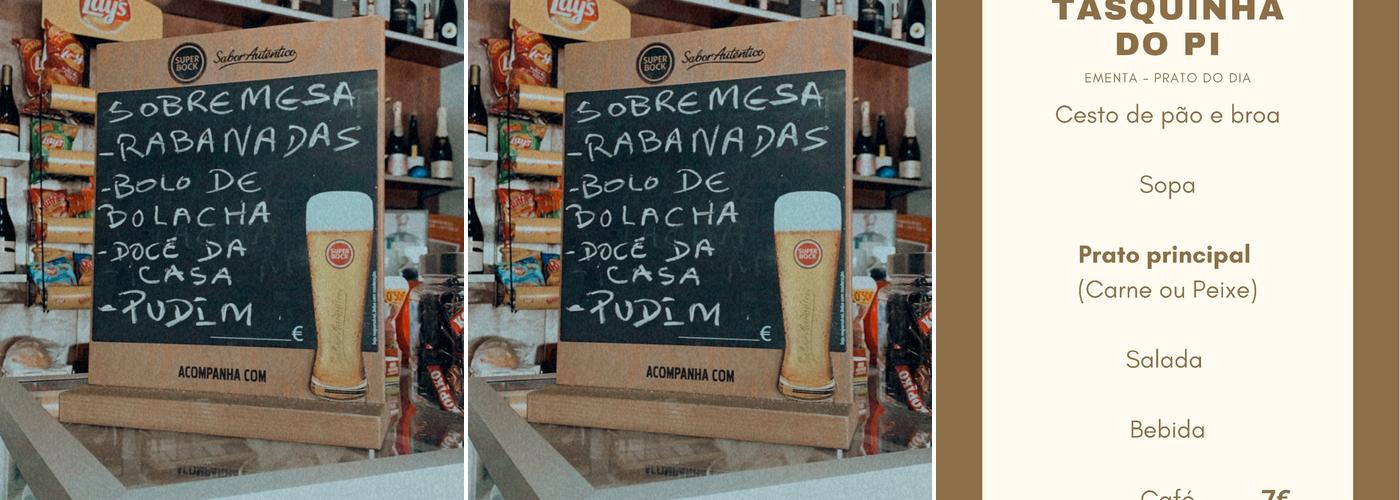 Lay's
SUPER
BOCK
Sabor Autêntico
SOBREMESA
-RABANADAS
-BOLO DE
BOLACHA
-DOCE DA
CASA
-PUDIM
€
SUPER
BOCK
ACOMPANHA COM
Lay's
SUPER
BOCK
Sabor Autêntico
SOBREMESA
-RABANADAS
-BOLO DE
BOLACHA
-DOCE DA
CASA
-PUDIM
€
SUPER
BOCK
ACOMPANHA COM
TASQUINHA
DO PI
EMENTA - PRATO DO DIA
Cesto de pão e broa
Sopa
Prato principal
(Carne ou Peixe)
Salada
Bebida
Café 7€